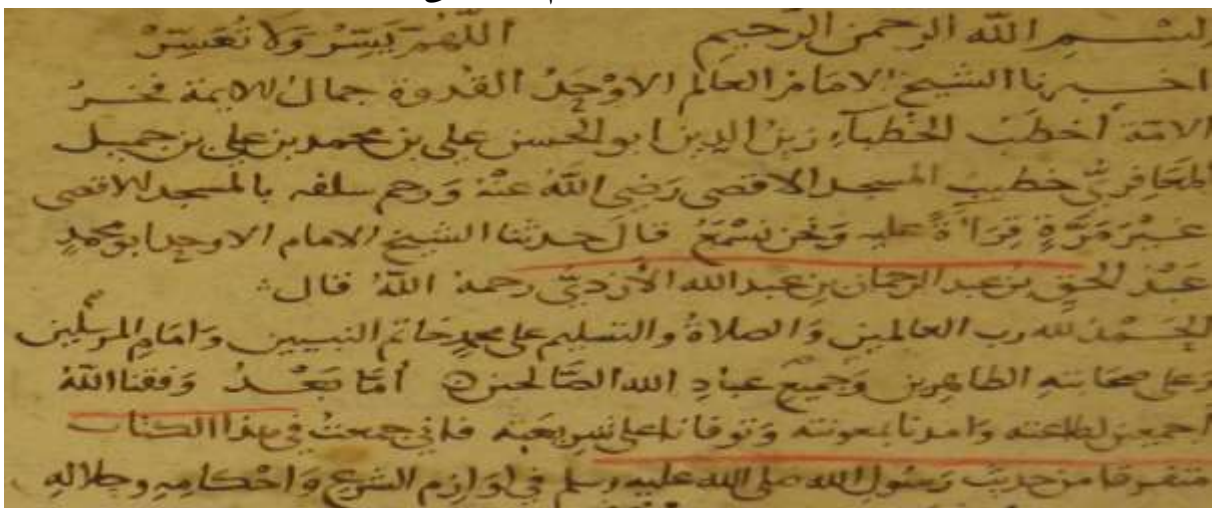 بسم الله الرحمن الرحيم اللهم يسر ولا تعسر
اخبرنا الشيخ الامام العالم الاوحد القدوة جمال الايمة فخر
الامة أخطب الخطباء زين الدين ابو الحسن علي بن محمد بن علي بن جميل
المعافري خطيب المسجد الاقصى رضي الله عنه ورحم سلفه بالمسجد الاقصى
غير مرة قراءة عليه ونحن نسمع قال حدثنا الشيخ الامام الاوحد ابو محمد
عبد الحق بن عبد الرحمان بن عبد الله الأزدي رحمه الله قال
الحمد لله رب العالمين والصلاة والتسليم على محمد خاتم النبيين وامام المرسلين
وعلى صحابته الطاهرين وجميع عباد الله الصالحين أما بعد وفقنا الله
أجمعين لطاعته وامدنا بمعونته وتوفانا على شريعته فاني جمعت في هذا الكتاب
متفرقا من حديث رسول الله صلى الله عليه وسلم في لوازم الشرع وأحكامه وحلاله